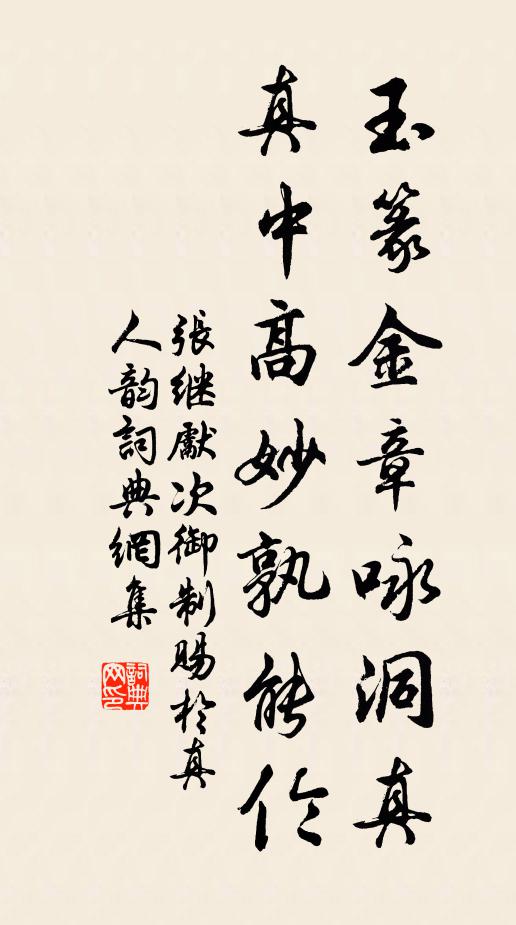 玉篆金章咏洞真
真中髙妙孰能伦
張继獻次御制賜於真
人韵詞典網集
詞典
网印